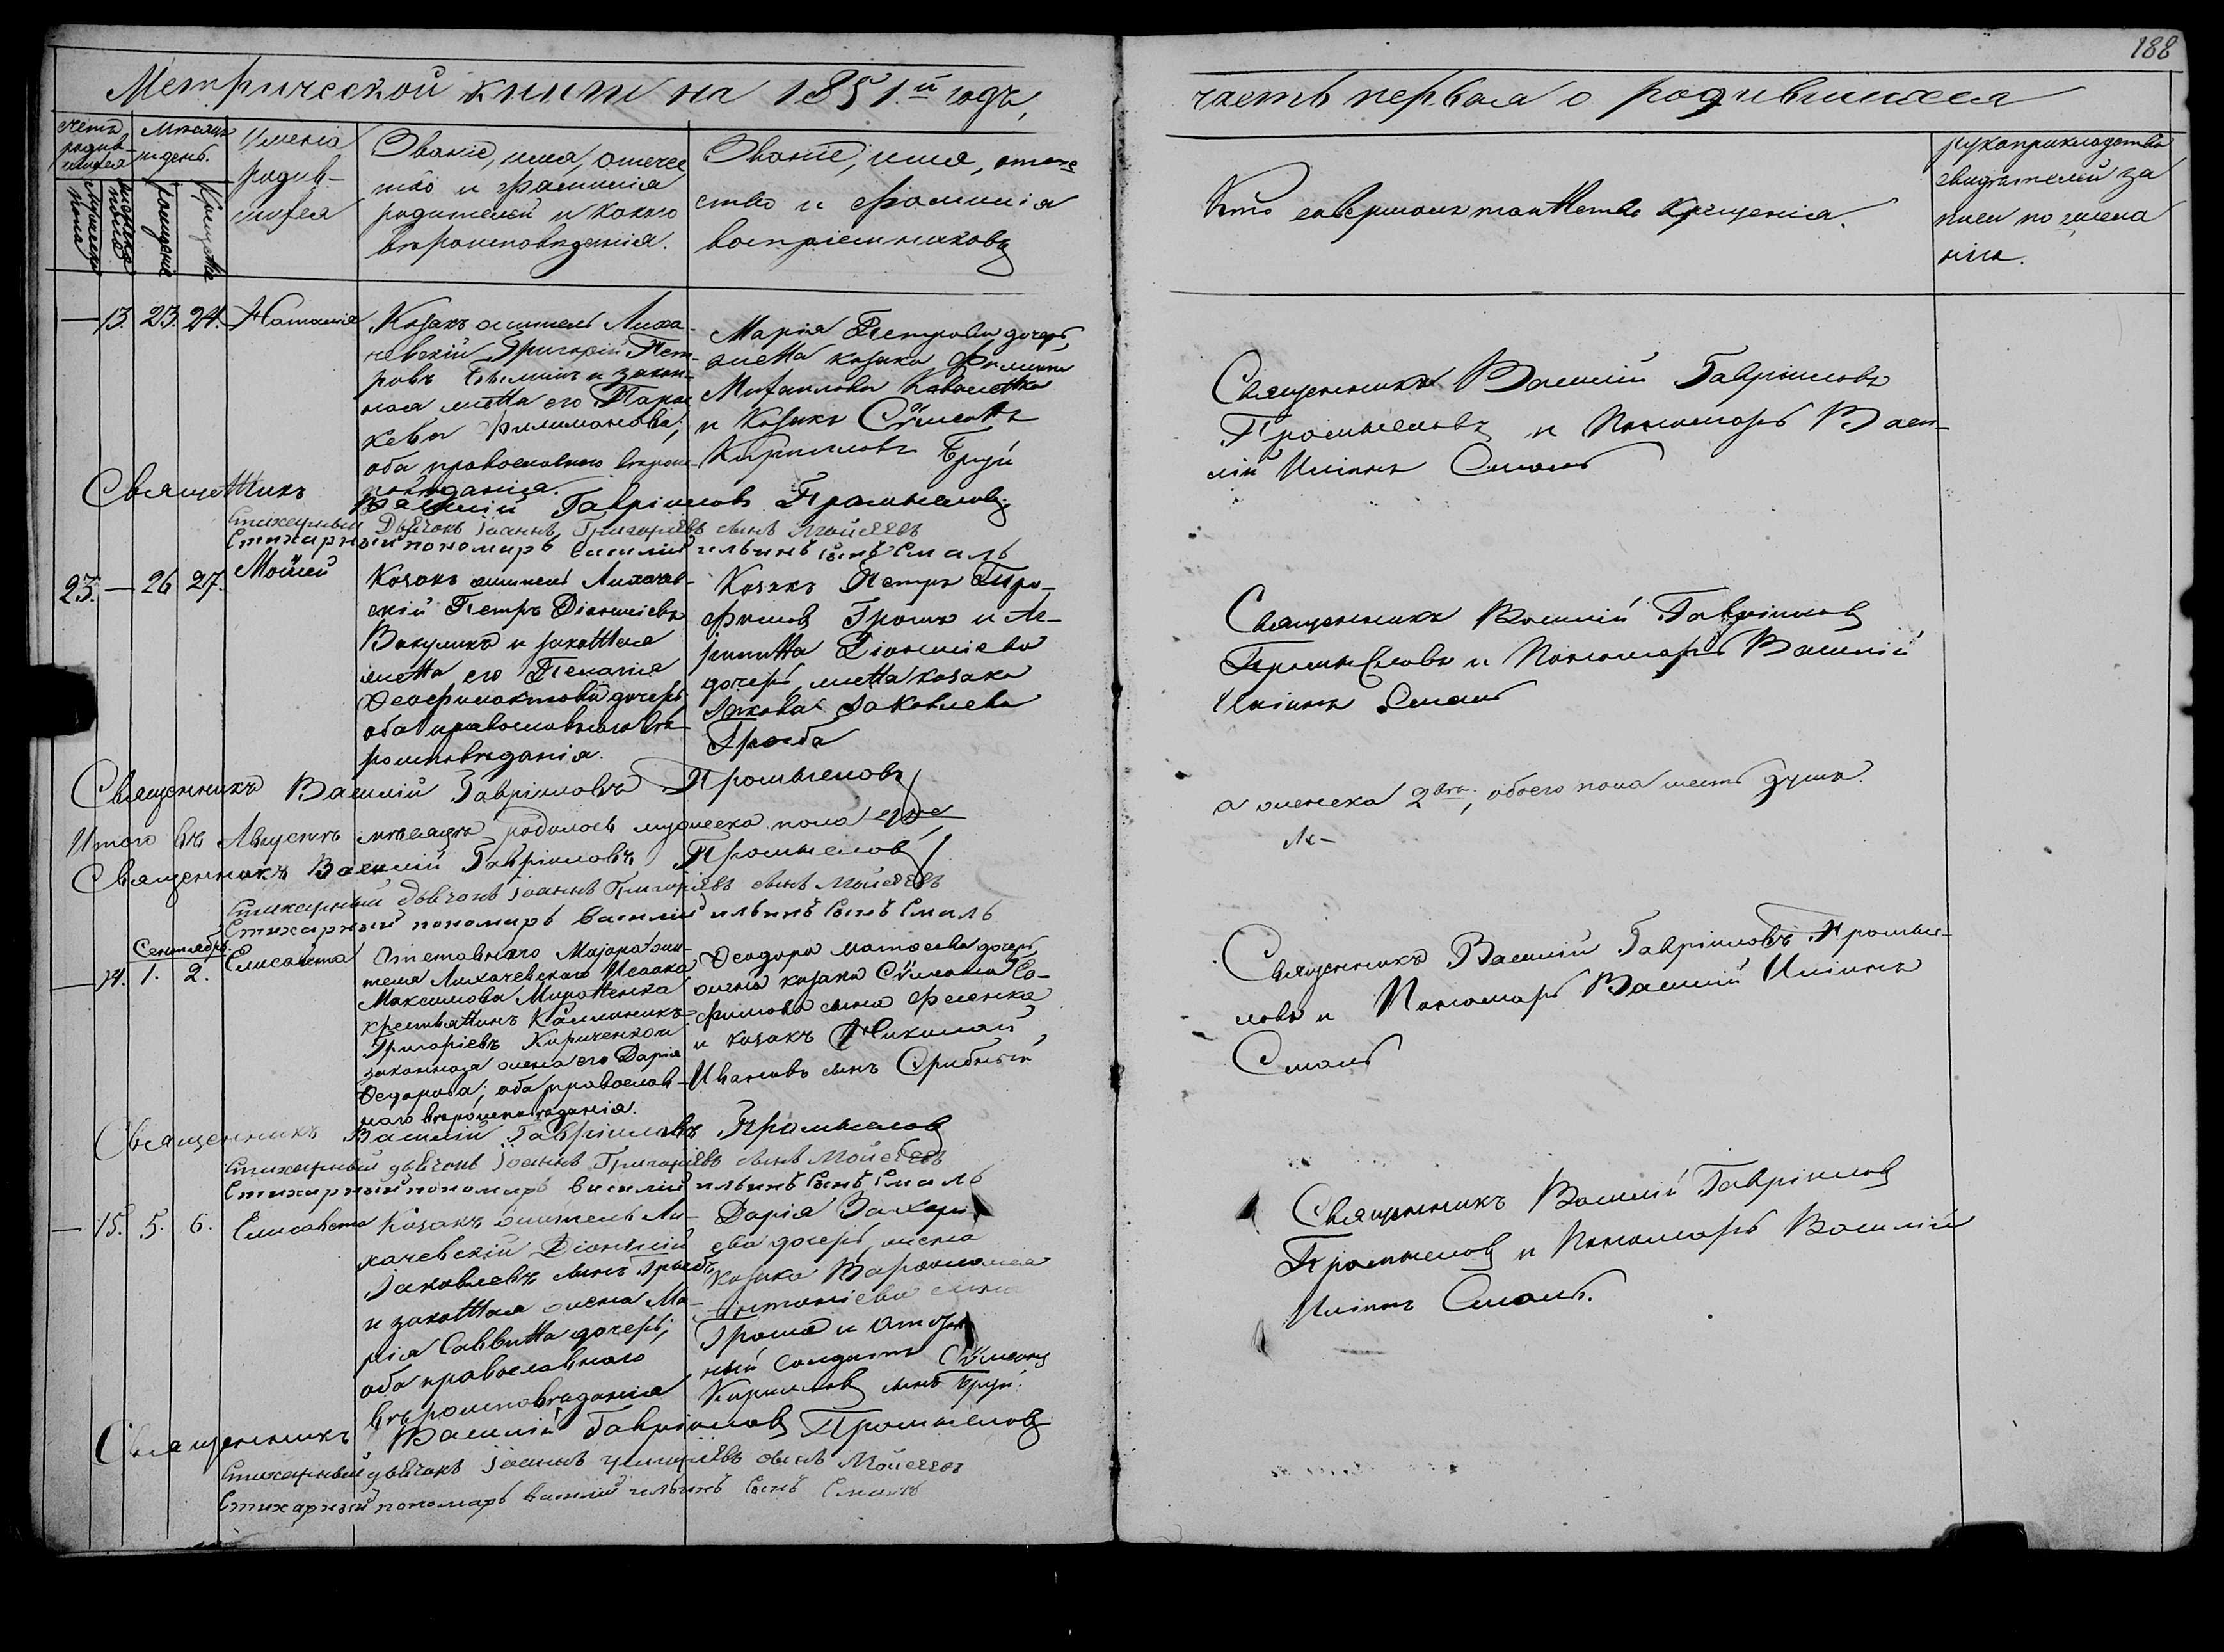 188
Метрической книги на 1851.й годъ,
часть первая о родившихся
Счетъ родив-шихся
Мѣсяцъ и день.
Имена родив-шихся
Званіе, имя, отечес
тво и фамилія
родителей и какого
вѣроисповѣданія.
Званіе, имя, отече
ство и фамилія
воспріемниковъ
Кто совершалъ таинство крещенія.
рукоприкладство
свидѣтелей за
писи по жела
нію.
Мужеска пола
женска пола
рожденіе
Крещеніе
— 13. 23. 24. Наталія
Козакъ житель Лиха-
чевскій Григорій Пет-
ровъ и закон-
ная жена его Парас
кева Филимонова;
оба православнаго вѣроис-
повѣданія.
Марія Петрова дочерь,
жена козака Филиппа
Михаилова Коваленка
и Козакъ Сѷмеонъ
Кирилловъ Бруй
Священникъ Василій Гавріиловъ
Промысловъ и Пономарь Васи-
лій Иліинъ Смаль
Священникъ Василій Гавріиловъ Промысловъ
Стихарный Дьячокъ Іоаннъ Григоріевъ сынъ Мойсеевъ
Стихарный пономарь василий ильинъ сынъ Смаль
23. — 26 27. Мойсей
Козакъ житель Лихачев-
скій Петръ Діонисіевъ
Вакулика и законная
жена его Пелагія
Феофилактова дочерь
оба православнаго вѣ-
роисповѣданія.
Козакъ Петръ Тро-
фимовъ Грома и Ге-
рипина Діонисіева
дочерь, жена козака
Іакова Іаковлева
Гриба
Священникъ Василій Гавріиловъ
Промысловъ и Пономарь Василій
Иліинъ Смаль
Священникъ Василій Гавріиловъ Промысловъ
Итого въ Августѣ мѣсяцѣ родилось мужеска пола
а женска 2, обоего пола шесть душъ.
Священникъ Василій Гавріиловъ Промысловъ
Стихарный дьячокъ Іоаннъ Григоріевъ сынъ Мойсеевъ
Стихарный пономарь василий ильинъ сынъ Смаль
Сентябрь.
— 14. 1. 2. Елисавета
Отставнаго Маіора жи-
теля Лихачевскаго Исаака
Максимова Мироненка
крестьянинъ Каллиникъ
Григоріевъ Кириченко и
законная жена его Дарія
Федорова; оба православ-
наго вѣроисповѣданія.
Феодора Матфеева дочерь,
жена козака Сѷмеона Со-
фимова сына Фесенка
и козакъ Николай
Ивановъ сынъ Срибный
Священникъ Василій Гавріиловъ Промыс-
ловъ и Пономарь Василій Иліинъ
Смаль
Священникъ Василій Гавріиловъ Промысловъ
Стихарный дьячокъ Іоаннъ Григоріевъ сынъ Мойсеевъ
Стихарный пономарь василий ильинъ сынъ Смаль
— 15. 5. 6. Елисавета
Козакъ житель Ли-
хачевскій Діонисій
Іаковлевъ сынъ Грибъ
и законная жена Ма-
рія Саввина дочерь;
оба православнаго
вѣроисповѣданія
Дарія Захарі
ева дочерь, жена
козака Варфоломея
Антоніева сына
Грома и
ный Солдатъ Сѷмеонъ
Кирилловъ сынъ Бруй.
Священникъ Василій Гавріиловъ
Промысловъ и Пономарь Василій
Иліинъ Смаль.
Священникъ Василій Гавріиловъ Промысловъ
Стихарный дьячокъ Іоаннъ Григоріевъ сынъ Мойсеевъ
Стихарный пономарь василий ильинъ сынъ Смаль